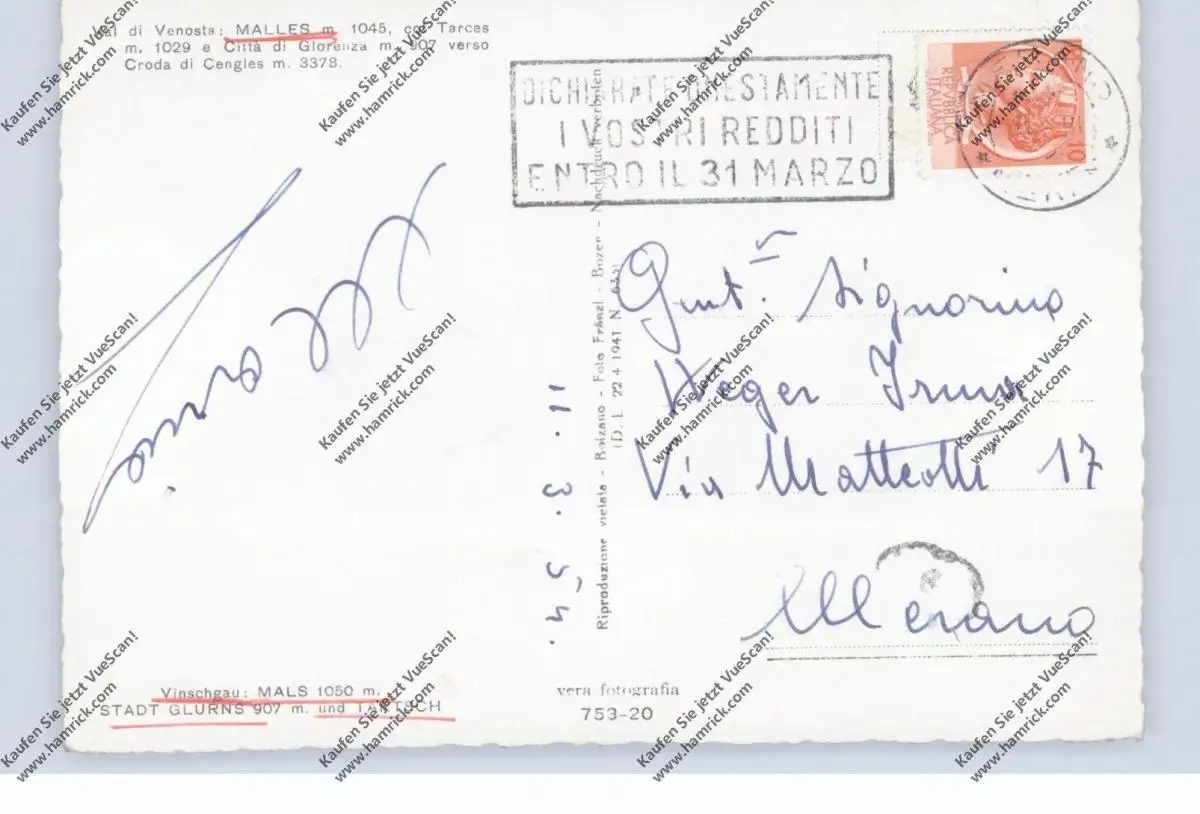 Val di Venosta: MALLES m. 1045, con Tarces
m. 1029 e Città di Glorenza m. 907 verso
Croda di Cengles m. 3378.
DICHIARATE ONESTAMENTE
I VOSTRI REDDITI
ENTRO IL 31 MARZO
REPVBBLICA
ITALIANA
10
Gent. Signorina
Weger Irma
Via Matteotti 17
Merano
11. 3. 54.
Riproduzione vietata - Bolzano - Foto Fränzl - Bozen - Nachdruck verboten
(D. L. 22 4 1941 N. 633)
Vinschgau: MALS 1050 m.
STADT GLURNS 907 m. und TARTSCH
vera fotografia
753-20
Kaufen Sie jetzt VueScan!
www.hamrick.com